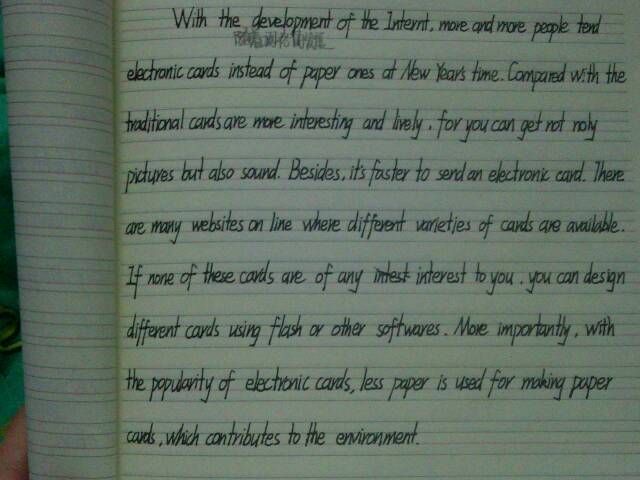 With the development of the Internt, more and more people tend
electronic cards instead of paper ones at New Year's time. Compared with the
traditional cards are more interesting and lively, for you can get not noly
pictures but also sound. Besides, it's faster to send an electronic card. There
are many websites on line where different varieties of cards are available.
If none of these cards are of any intest interest to you, you can design
different cards using flash or other softwares. More importantly, with
the popularity of electronic cards, less paper is used for making paper
cards, which contributes to the environment.